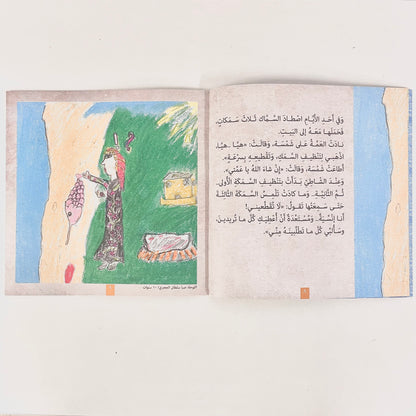 وَفِي أَحَدِ الأَيَّامِ اصْطَادَ السَّمَّاكُ ثَلاثَ سَمَكَاتٍ،
فَحَمَلَهَا مَعَهُ إِلَى البَيْتِ.
نَادَتْ العَمَّةُ عَلَى شَمْسَةَ، وَقَالَتْ: «هيَّا.. هيَّا..
اذْهَبِي لِتَنْظِيفِ السَّمَكِ، وَتَقْطِيعِهِ بِسُرْعَةٍ».
أَطَاعَتْ شَمْسَةُ، وَقَالَتْ: «إِنْ شَاءَ اللهُ يَا عَمَّتِي».
وَعِنْدَ الشَّاطِئِ بَدَأَتْ بِتَنْظِيفِ السَّمَكَةِ الأُولَى،
ثُمَّ الثَّانِيَةِ. وَمَا كَادَتْ تَلْمِسُ السَّمَكَةَ الثَّالِثَةَ
حَتَّى سَمِعَتْهَا تَقُولُ: «لَا تُقَطِّعِينِي!
أَنَا لَسْمَكَةٌ، وَمُسْتَعِدَّةٌ أَنْ أُعْطِيَكِ كُلَّ مَا تُرِيدِينَ،
وَسَأُلَبِّي كُلَّ مَا تَطْلُبِينَهُ مِنِّي».
سنوات